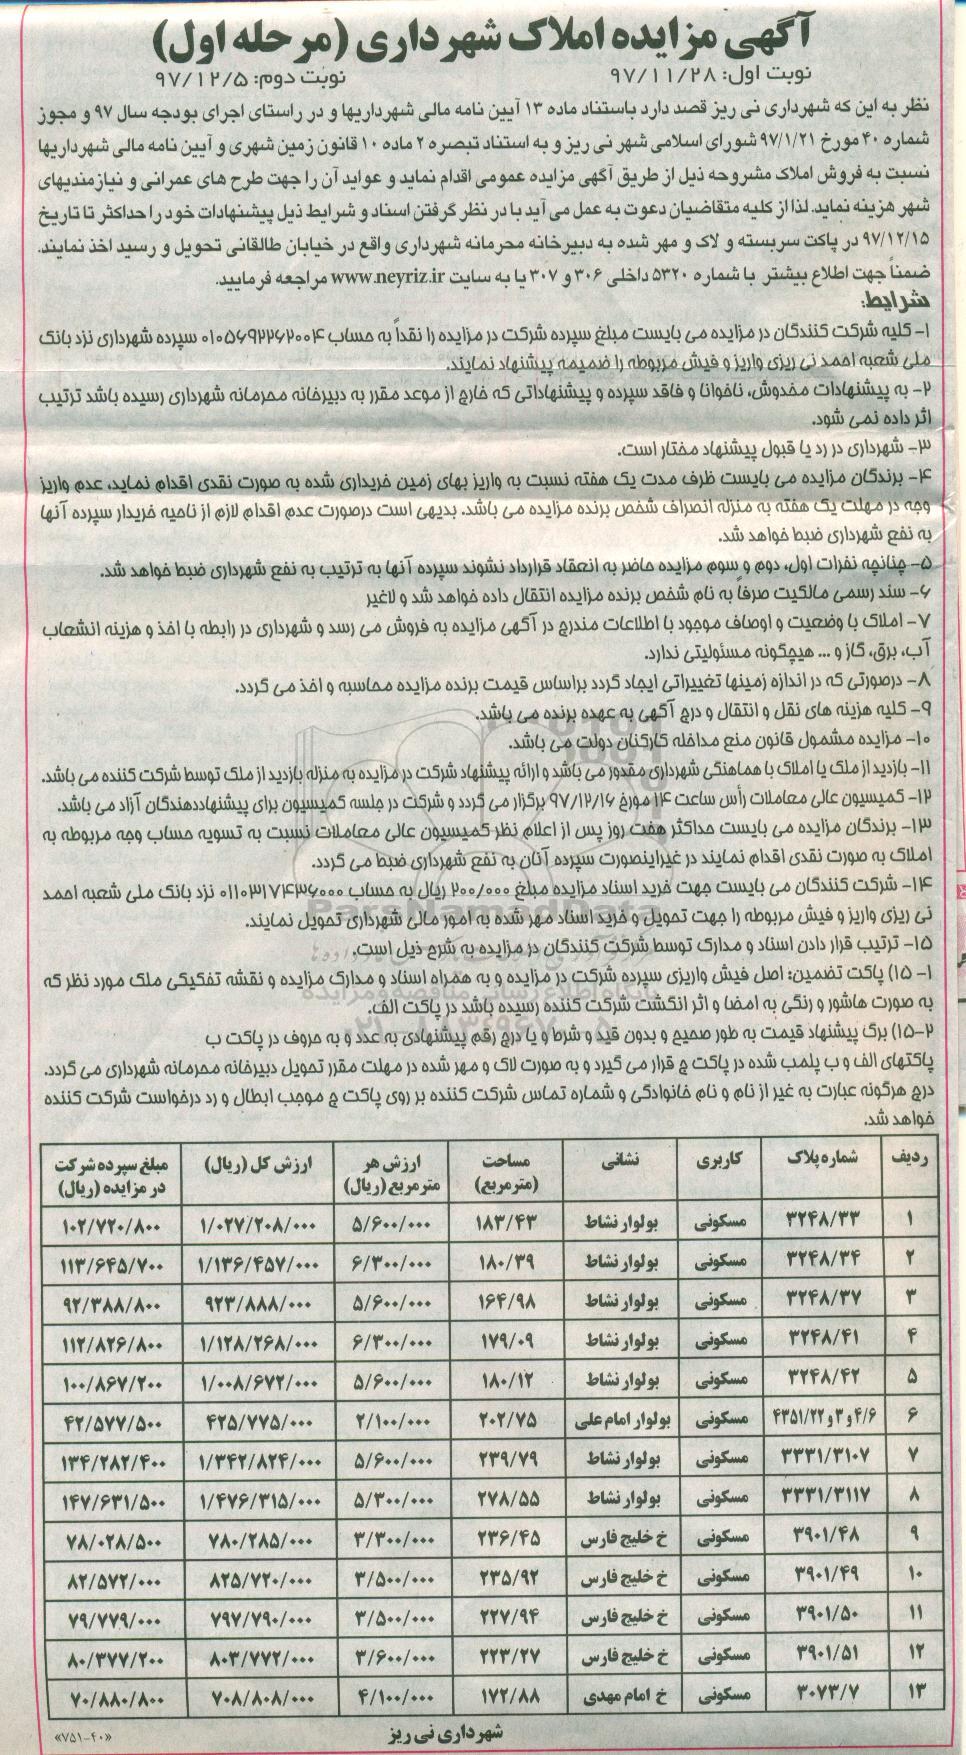 آگهی مزایده املاک شهرداری (مرحله اول)
نوبت اول: ۹۷/۱۱/۲۸ نوبت دوم: ۹۷/۱۲/۵
نظر به این که شهرداری نی ریز قصد دارد باستناد ماده ۱۳ آیین نامه مالی شهرداریها و در راستای اجرای بودجه سال ۹۷ و مجوز
شماره ۴۰ مورخ ۹۷/۱/۲۱ شورای اسلامی شهر نی ریز و به استناد تبصره ۲ ماده ۱۰ قانون زمین شهری و آیین نامه مالی شهرداریها
نسبت به فروش املاک مشروحه ذیل از طریق آگهی مزایده عمومی اقدام نماید و عواید آن را جهت طرح های عمرانی و نیازمندیهای
شهر هزینه نماید. لذا از کلیه متقاضیان دعوت به عمل می آید با در نظر گرفتن اسناد و شرایط ذیل پیشنهادات خود را حداکثر تا تاریخ
۹۷/۱۲/۱۵ در پاکت سربسته و لاک و مهر شده به دبیرخانه محرمانه شهرداری واقع در خیابان طالقانی تحویل و رسید اخذ نمایند.
ضمناً جهت اطلاع بیشتر با شماره ۵۳۲۰ داخلی ۳۰۶ و ۳۰۷ یا به سایت www.neyriz.ir مراجعه فرمایید.
شرایط:
۱- کلیه شرکت کنندگان در مزایده می بایست مبلغ سپرده شرکت در مزایده را نقداً به حساب ۰۱۰۵۶۹۲۲۶۲۰۰۴ سپرده شهرداری نزد بانک
ملی شعبه احمد نی ریزی واریز و فیش مربوطه را ضمیمه پیشنهاد نمایند.
۲- به پیشنهادات مخدوش، ناخوانا و فاقد سپرده و پیشنهاداتی که خارج از موعد مقرر به دبیرخانه محرمانه شهرداری رسیده باشد ترتیب
اثر داده نمی شود.
۳- شهرداری در رد یا قبول پیشنهاد مختار است.
۴- برندگان مزایده می بایست ظرف مدت یک هفته نسبت به واریز بهای زمین خریداری شده به صورت نقدی اقدام نماید، عدم واریز
وجه در مهلت یک هفته به منزله انصراف شخص برنده مزایده می باشد. بدیهی است درصورت عدم اقدام لازم از ناحیه خریدار سپرده آنها
به نفع شهرداری ضبط خواهد شد.
۵- چنانچه نفرات اول، دوم و سوم مزایده حاضر به انعقاد قرارداد نشوند سپرده آنها به ترتیب به نفع شهرداری ضبط خواهد شد.
۶- سند رسمی مالکیت صرفاً به نام شخص برنده مزایده انتقال داده خواهد شد و لاغیر
۷- املاک با وضعیت و اوصاف موجود با اطلاعات مندرج در آگهی مزایده به فروش می رسد و شهرداری در رابطه با اخذ و هزینه انشعاب
آب، برق، گاز و ... هیچگونه مسئولیتی ندارد.
۸- درصورتی که در اندازه زمینها تغییراتی ایجاد گردد براساس قیمت برنده مزایده محاسبه و اخذ می گردد.
۹- کلیه هزینه های نقل و انتقال و درج آگهی به عهده برنده می باشد.
۱۰- مزایده مشمول قانون منع مداخله کارکنان دولت می باشد.
۱۱- بازدید از ملک یا املاک با هماهنگی شهرداری مقدور می باشد و ارائه پیشنهاد شرکت در مزایده به منزله بازدید از ملک توسط شرکت کننده می باشد.
۱۲- کمیسیون عالی معاملات رأس ساعت ۱۴ مورخ ۹۷/۱۲/۱۶ برگزار می گردد و شرکت در جلسه کمیسیون برای پیشنهاددهندگان آزاد می باشد.
۱۳- برندگان مزایده می بایست حداکثر هفت روز پس از اعلام نظر کمیسیون عالی معاملات نسبت به تسویه حساب وجه مربوطه به
املاک به صورت نقدی اقدام نمایند در غیراینصورت سپرده آنان به نفع شهرداری ضبط می گردد.
۱۴- شرکت کنندگان می بایست جهت خرید اسناد مزایده مبلغ ۲۰۰/۰۰۰ ریال به حساب ۰۱۱۰۳۱۷۴۳۶۰۰۰ نزد بانک ملی شعبه احمد
نی ریزی واریز و فیش مربوطه را جهت تحویل و خرید اسناد مهر شده به امور مالی شهرداری تحویل نمایند.
۱۵- ترتیب قرار دادن اسناد و مدارک توسط شرکت کنندگان در مزایده به شرح ذیل است.
۱-۱۵) پاکت تضمین: اصل فیش واریزی سپرده شرکت در مزایده و به همراه اسناد و مدارک مزایده و نقشه تفکیکی ملک مورد نظر که
به صورت هاشور و رنگی به امضا و اثر انگشت شرکت کننده رسیده باشد در پاکت الف.
۲-۱۵) برگ پیشنهاد قیمت به طور صحیح و بدون قید و شرط و با درج رقم پیشنهادی به عدد و به حروف در پاکت ب
پاکتهای الف و ب پلمب شده در پاکت ج قرار می گیرد و به صورت لاک و مهر شده در مهلت مقرر تحویل دبیرخانه محرمانه شهرداری می گردد.
درج هرگونه عبارت به غیر از نام و نام خانوادگی و شماره تماس شرکت کننده بر روی پاکت ج موجب ابطال و رد درخواست شرکت کننده
خواهد شد.
ردیف شماره پلاک کاربری نشانی مساحت (مترمربع) ارزش هر مترمربع (ریال) ارزش کل (ریال) مبلغ سپرده شرکت در مزایده (ریال)
۱ ۳۲۴۸/۳۳ مسکونی بولوار نشاط ۱۸۳/۴۳ ۵/۶۰۰/۰۰۰ ۱/۰۲۷/۲۰۸/۰۰۰ ۱۰۲/۷۲۰/۸۰۰
۲ ۳۲۴۸/۳۴ مسکونی بولوار نشاط ۱۸۰/۳۹ ۶/۳۰۰/۰۰۰ ۱/۱۳۶/۴۵۷/۰۰۰ ۱۱۳/۶۴۵/۷۰۰
۳ ۳۲۴۸/۳۷ مسکونی بولوار نشاط ۱۶۴/۹۸ ۵/۶۰۰/۰۰۰ ۹۲۳/۸۸۸/۰۰۰ ۹۲/۳۸۸/۸۰۰
۴ ۳۲۴۸/۴۱ مسکونی بولوار نشاط ۱۷۹/۰۹ ۶/۳۰۰/۰۰۰ ۱/۱۲۸/۲۶۸/۰۰۰ ۱۱۲/۸۲۶/۸۰۰
۵ ۳۲۴۸/۴۲ مسکونی بولوار نشاط ۱۸۰/۱۲ ۵/۶۰۰/۰۰۰ ۱/۰۰۸/۶۷۲/۰۰۰ ۱۰۰/۸۶۷/۲۰۰
۶ ۴/۶ و ۳ و ۴۳۵۱/۲۲ مسکونی بولوار امام علی ۲۰۲/۷۵ ۲/۱۰۰/۰۰۰ ۴۲۵/۷۷۵/۰۰۰ ۴۲/۵۷۷/۵۰۰
۷ ۳۳۳۱/۳۱۰۷ مسکونی بولوار نشاط ۲۳۹/۷۹ ۵/۶۰۰/۰۰۰ ۱/۳۴۲/۸۲۴/۰۰۰ ۱۳۴/۲۸۲/۴۰۰
۸ ۳۳۳۱/۳۱۱۷ مسکونی بولوار نشاط ۲۷۸/۵۵ ۵/۳۰۰/۰۰۰ ۱/۴۷۶/۳۱۵/۰۰۰ ۱۴۷/۶۳۱/۵۰۰
۹ ۳۹۰۱/۴۸ مسکونی خ خلیج فارس ۲۳۶/۴۵ ۳/۳۰۰/۰۰۰ ۷۸۰/۲۸۵/۰۰۰ ۷۸/۰۲۸/۵۰۰
۱۰ ۳۹۰۱/۴۹ مسکونی خ خلیج فارس ۲۳۵/۹۲ ۳/۵۰۰/۰۰۰ ۸۲۵/۷۲۰/۰۰۰ ۸۲/۵۷۲/۰۰۰
۱۱ ۳۹۰۱/۵۰ مسکونی خ خلیج فارس ۲۲۷/۹۴ ۳/۵۰۰/۰۰۰ ۷۹۷/۷۹۰/۰۰۰ ۷۹/۷۷۹/۰۰۰
۱۲ ۳۹۰۱/۵۱ مسکونی خ خلیج فارس ۲۲۳/۲۷ ۳/۶۰۰/۰۰۰ ۸۰۳/۷۷۲/۰۰۰ ۸۰/۳۷۷/۲۰۰
۱۳ ۳۰۷۳/۷ مسکونی خ امام مهدی ۱۷۲/۸۸ ۴/۱۰۰/۰۰۰ ۷۰۸/۸۰۸/۰۰۰ ۷۰/۸۸۰/۸۰۰
شهرداری نی ریز
«۷۵۱-۴۰»